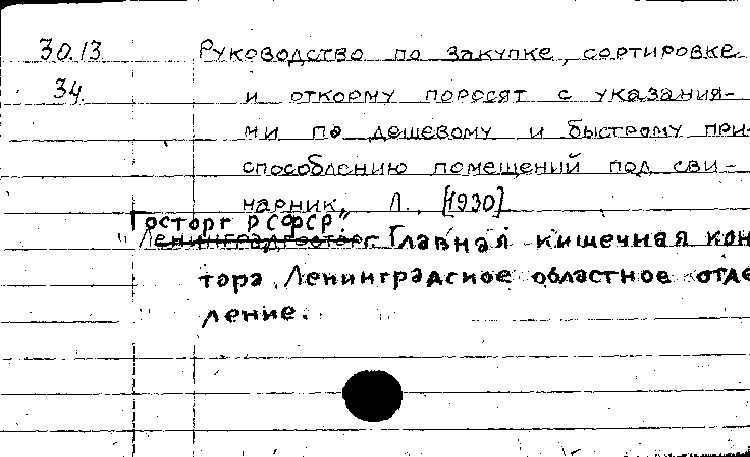 30.13 Руководство по закупке, сортировке
34. и откорму поросят с указания-
ми по дешевому и быстрому при-
способлению помещений под сви-
нарник. Л., [1930]
Госторг РСФСР."
"Ленинградгосторг. Главная кишечная кон
тора. Ленинградское областное отде
ление.